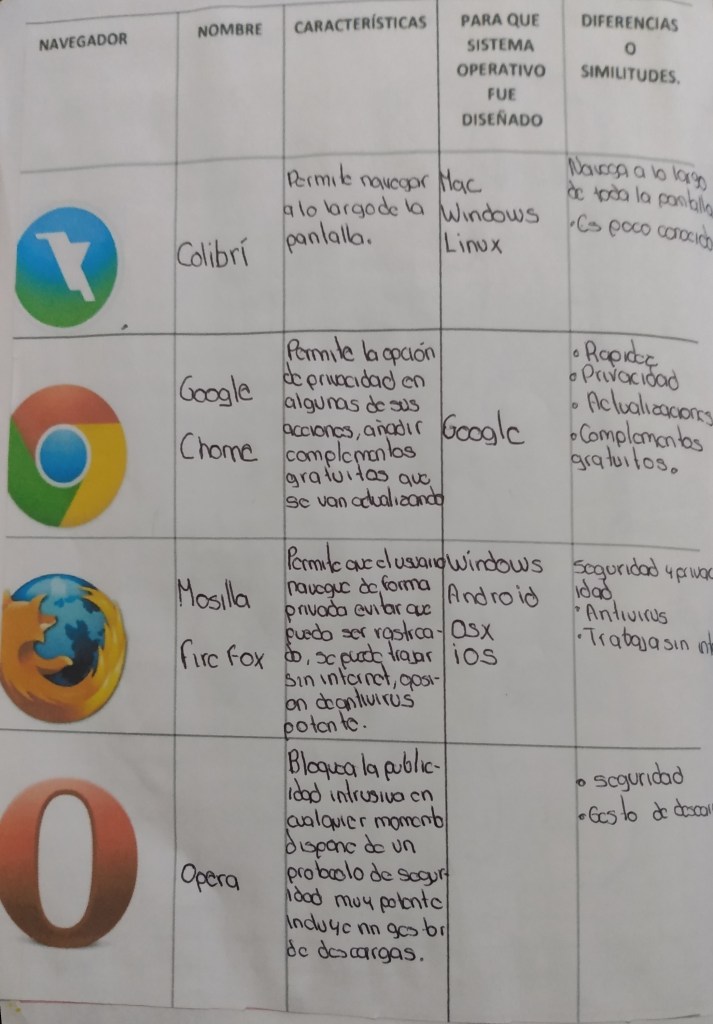 NAVEGADOR
NOMBRE
CARACTERÍSTICAS
PARA QUE
SISTEMA
OPERATIVO
FUE
DISEÑADO
DIFERENCIAS
O
SIMILITUDES.
Colibrí
Permite navegar
a lo largo de la
pantalla.
Mac
Windows
Linux
Navega a lo largo
de toda la pantalla
• Es poco conocido
Google
Chome
Permite la opción
de privacidad en
algunas de sus
acciones, añadir
complementos
gratuitos que
se van actualizando
Google
• Rapidez
• Privacidad
• Actualizaciones
• Complementos
gratuitos.
Mosilla
fire fox
Permite que el usuario
navegue de forma
privada evitar que
pueda ser rastrea-
do, se puede trajar
sin internet, oposi-
on de antivirus
potente.
Windows
Android
Osx
iOS
seguridad y privac
idad
• Antivirus
• Trabaja sin int
Opera
Bloquea la public-
idad intrusiva en
cualquier momento
dispone de un
protocolo de segur
idad muy potente
incluye nn gestor
de descargas.
• seguridad
• Gesto de descar